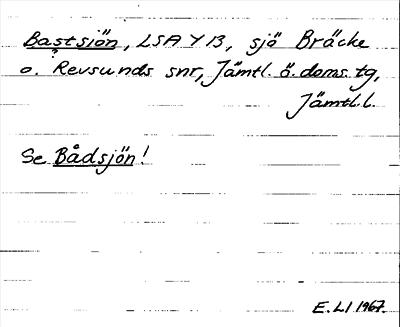 Bastsjön, LSA Y 13, sjö Bräcke
o. Revsunds snr, Jämtl. ö. doms. tg,
Jämtl.l.
Se Bådsjön!
E. LI 1967.